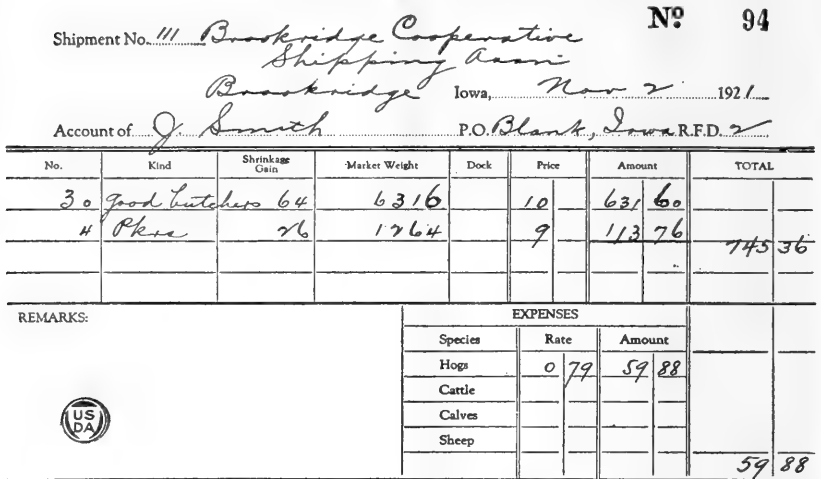 Nº 94
Shipment No. 111 Brookridge Cooperative
Shipping Assn
Brookridge Iowa, Nov 2 1921
Account of J Smith P.O. Blank, Iowa R.F.D. 2
No. Kind Shrinkage Gain Market Weight Dock Price Amount TOTAL
30 good butchers 64 6316 10 631 60
4 Pkrs 26 1264 9 113 76 745 36
REMARKS: EXPENSES
Species Rate Amount
Hogs 0 79 59 88
Cattle
Calves
Sheep
59 88
US
DA